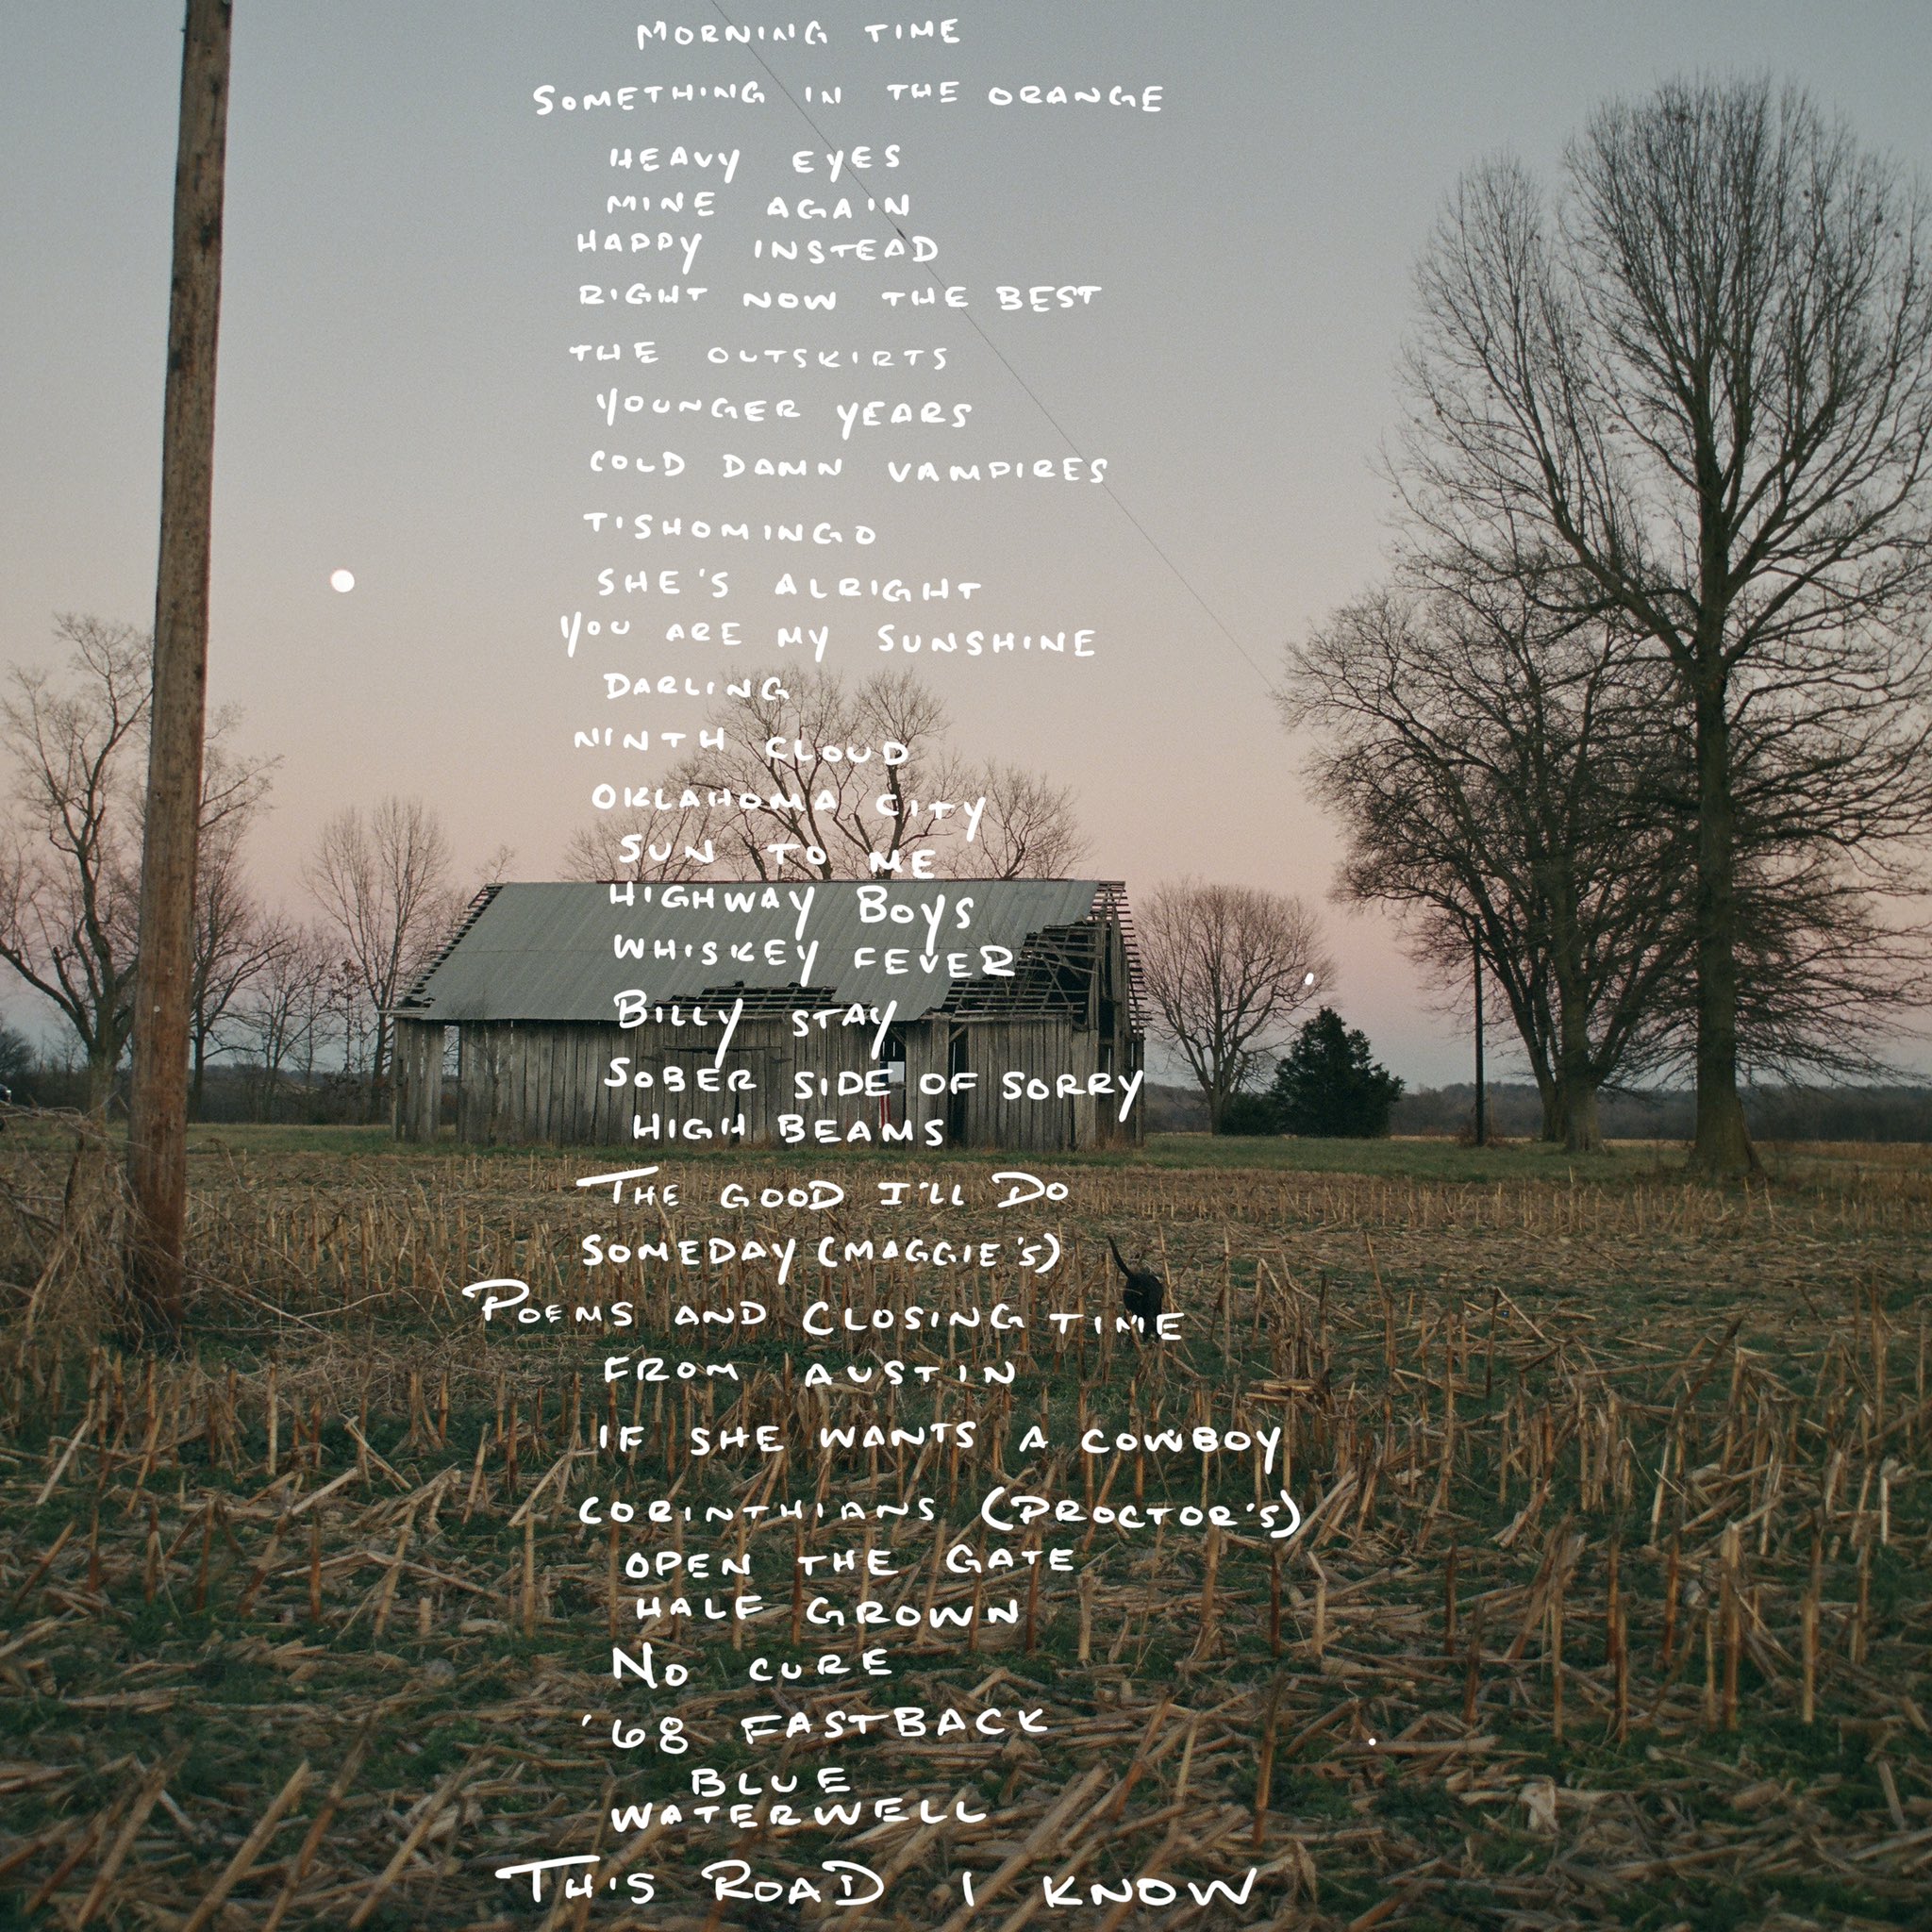 MORNING TIME
SOMETHING IN THE ORANGE
HEAVY EYES
MINE AGAIN
HAPPY INSTEAD
RIGHT NOW THE BEST
THE OUTSKIRTS
YOUNGER YEARS
COLD DAMN VAMPIRES
TISHOMINGO
SHE'S ALRIGHT
YOU ARE MY SUNSHINE
DARLING
NINTH CLOUD
OKLAHOMA CITY
SUN TO ME
HIGHWAY BOYS
WHISKEY FEVER
BILLY STAY
SOBER SIDE OF SORRY
HIGH BEAMS
THE GOOD I'LL DO
SOMEDAY (MAGGIE'S)
POEMS AND CLOSING TIME
FROM AUSTIN
IF SHE WANTS A COWBOY
CORINTHIANS (PROCTOR'S)
OPEN THE GATE
HALF GROWN
NO CURE
'68 FASTBACK
BLUE
WATERWELL
THIS ROAD I KNOW